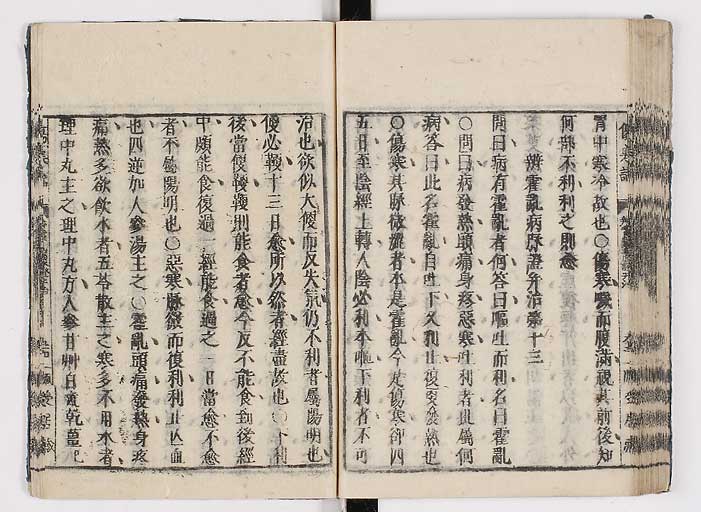 胃中寒冷故也○傷寒噦而腹滿視其前後知
何部不利利之則愈
辨霍亂病脉證并治第十三
問曰病有霍亂者何答曰嘔吐而利名曰霍亂
○問曰病發熱頭痛身疼惡寒吐利者此屬何
病答曰此名霍亂自吐下又利止復更發熱也
○傷寒其脉微濇者本是霍亂今是傷寒卻四
五日至陰經上轉入陰必利本嘔下利者不可
治也欲似大便而反失氣仍不利者屬陽明也
便必鞕十三日愈所以然者經盡故也○下利
後當便鞕鞕則能食者愈今反不能食到後經
中頗能食復過一經能食過之一日當愈不愈
者不屬陽明也○惡寒脉微而復利利止亡血
也四逆加人參湯主之○霍亂頭痛發熱身疼
痛熱多欲飲水者五苓散主之寒多不用水者
理中丸主之理中丸方人參甘艸白朮乾薑